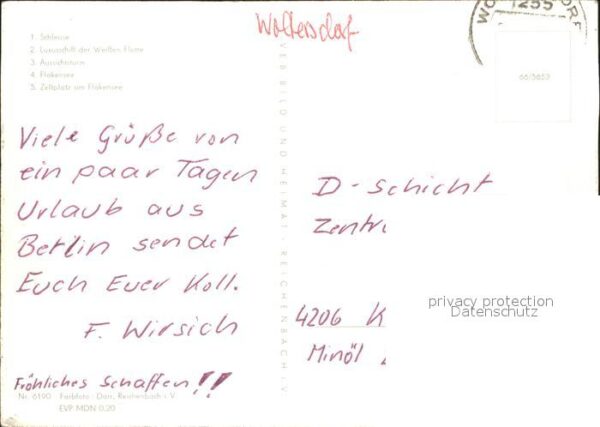 Woltersdorf
1255
1. Schleuse
2. Luxusschiff der Weißen Flotte
3. Aussichtsturm
4. Flakensee
5. Zeltplatz am Flakensee
66/5653
Viele Grüße von
ein paar Tagen
Urlaub aus
Berlin sendet
Euch Euer Koll.
F. Wirsich
Fröhliches Schaffen!!
Nr. 6190 Farbfoto: Dorr, Reichenbach i. V.
EVP MDN 0,20
VEB BILD UND HEIMAT · REICHENBACH i. V.
D-Schicht
Zentr
4206 K
Minöl
privacy protection
Datenschutz